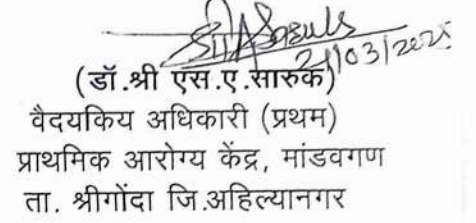 21/03/2025
(डॉ.श्री एस.ए.सारुक)
वैदयकिय अधिकारी (प्रथम)
प्राथमिक आरोग्य केंद्र, मांडवगण
ता. श्रीगोंदा जि.अहिल्यानगर